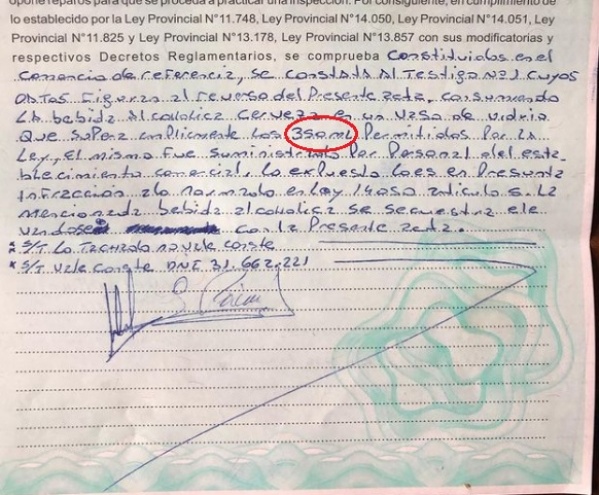 opone reparos para que se proceda a practicar una inspección. Por consiguiente, en cumplimiento de
lo establecido por la Ley Provincial N°11.748, Ley Provincial N°14.050, Ley Provincial N°14.051, Ley
Provincial N°11.825 y Ley Provincial N°13.178, Ley Provincial N°13.857 con sus modificatorias y
respectivos Decretos Reglamentarios, se comprueba Constituidos en el
comercio de referencia, se constata al Testigo N°1 cuyos
datos figuran al reverso del presente acta, consumiendo
la bebida alcoholica cerveza en un vaso de vidrio
que supera ampliamente los 350 ml permitidos por la
Ley, el mismo fue suministrado por personal del esta
blecimiento comercial, lo expuesto lo es en presunta
infracción a lo normado en Ley 14050 articulo 5. La
mencionada bebida alcoholica se secuestra ele
vandose con la presente acta.
S/T Lo Tachado no vale conste
* S/T vale conste DNI 31.662.221